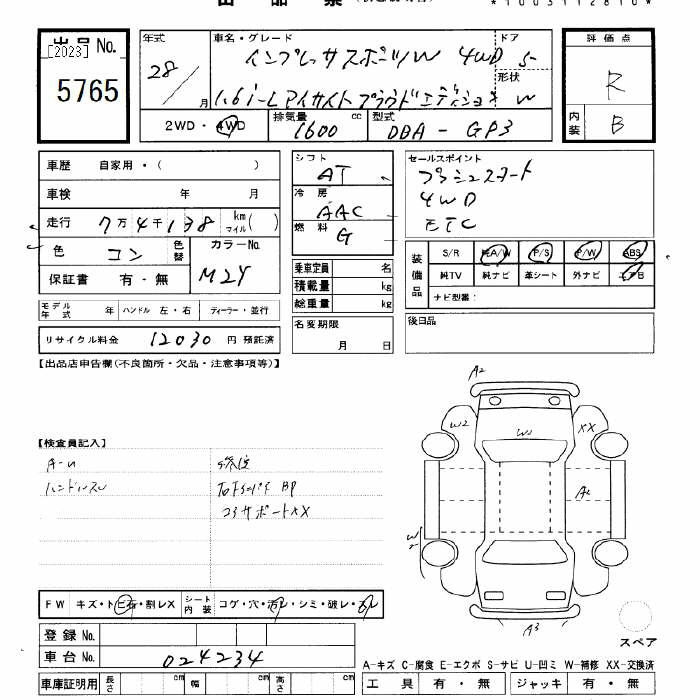 出品票
*1003112810*
出品 No.
[2023]
5765
年式
28/
月
車名・グレード
インプレッサスポーツW 4WD
1.6i-L アイサイト プラウドエディション
ドア
5
形状
W
2WD・4WD
排気量
1600
cc
型式
DBA - GP3
評価点
R
内装
B
車歴 自家用・( )
車検 年 月
走行 7万4千138 km マイル( )
色 コン 色替
カラーNo.
M24
保証書 有・無
モデル年式 年 ハンドル 左・右 ディーラー・並行
リサイクル料金 12030 円 預託済
シフト
AT
冷房
AAC
燃料
G
乗車定員 名
積載量 kg
総重量 kg
名変期限
月 日
セールスポイント
プッシュスタート
4WD
ETC
装備品
S/R 純A/W P/S P/W ABS
純TV 純ナビ 革シート 外ナビ エアB
ナビ型番:
後日品
【出品店申告欄(不良箇所・欠品・注意事項等)】
【検査員記入】
ハンドルスレ
コアサポートXX
A2
W2
W1
XX
A2
W2
A3
スペア
FW キズ・トビ石・割レX
シート内装 コゲ・穴・汚レ・シミ・破レ・スレ
登録 No.
車台 No. 024234
車庫証明用 長さ cm 幅 cm 高さ cm
A-キズ C-腐食 E-エクボ S-サビ U-凹ミ W-補修 XX-交換済
工具 有・無 ジャッキ 有・無